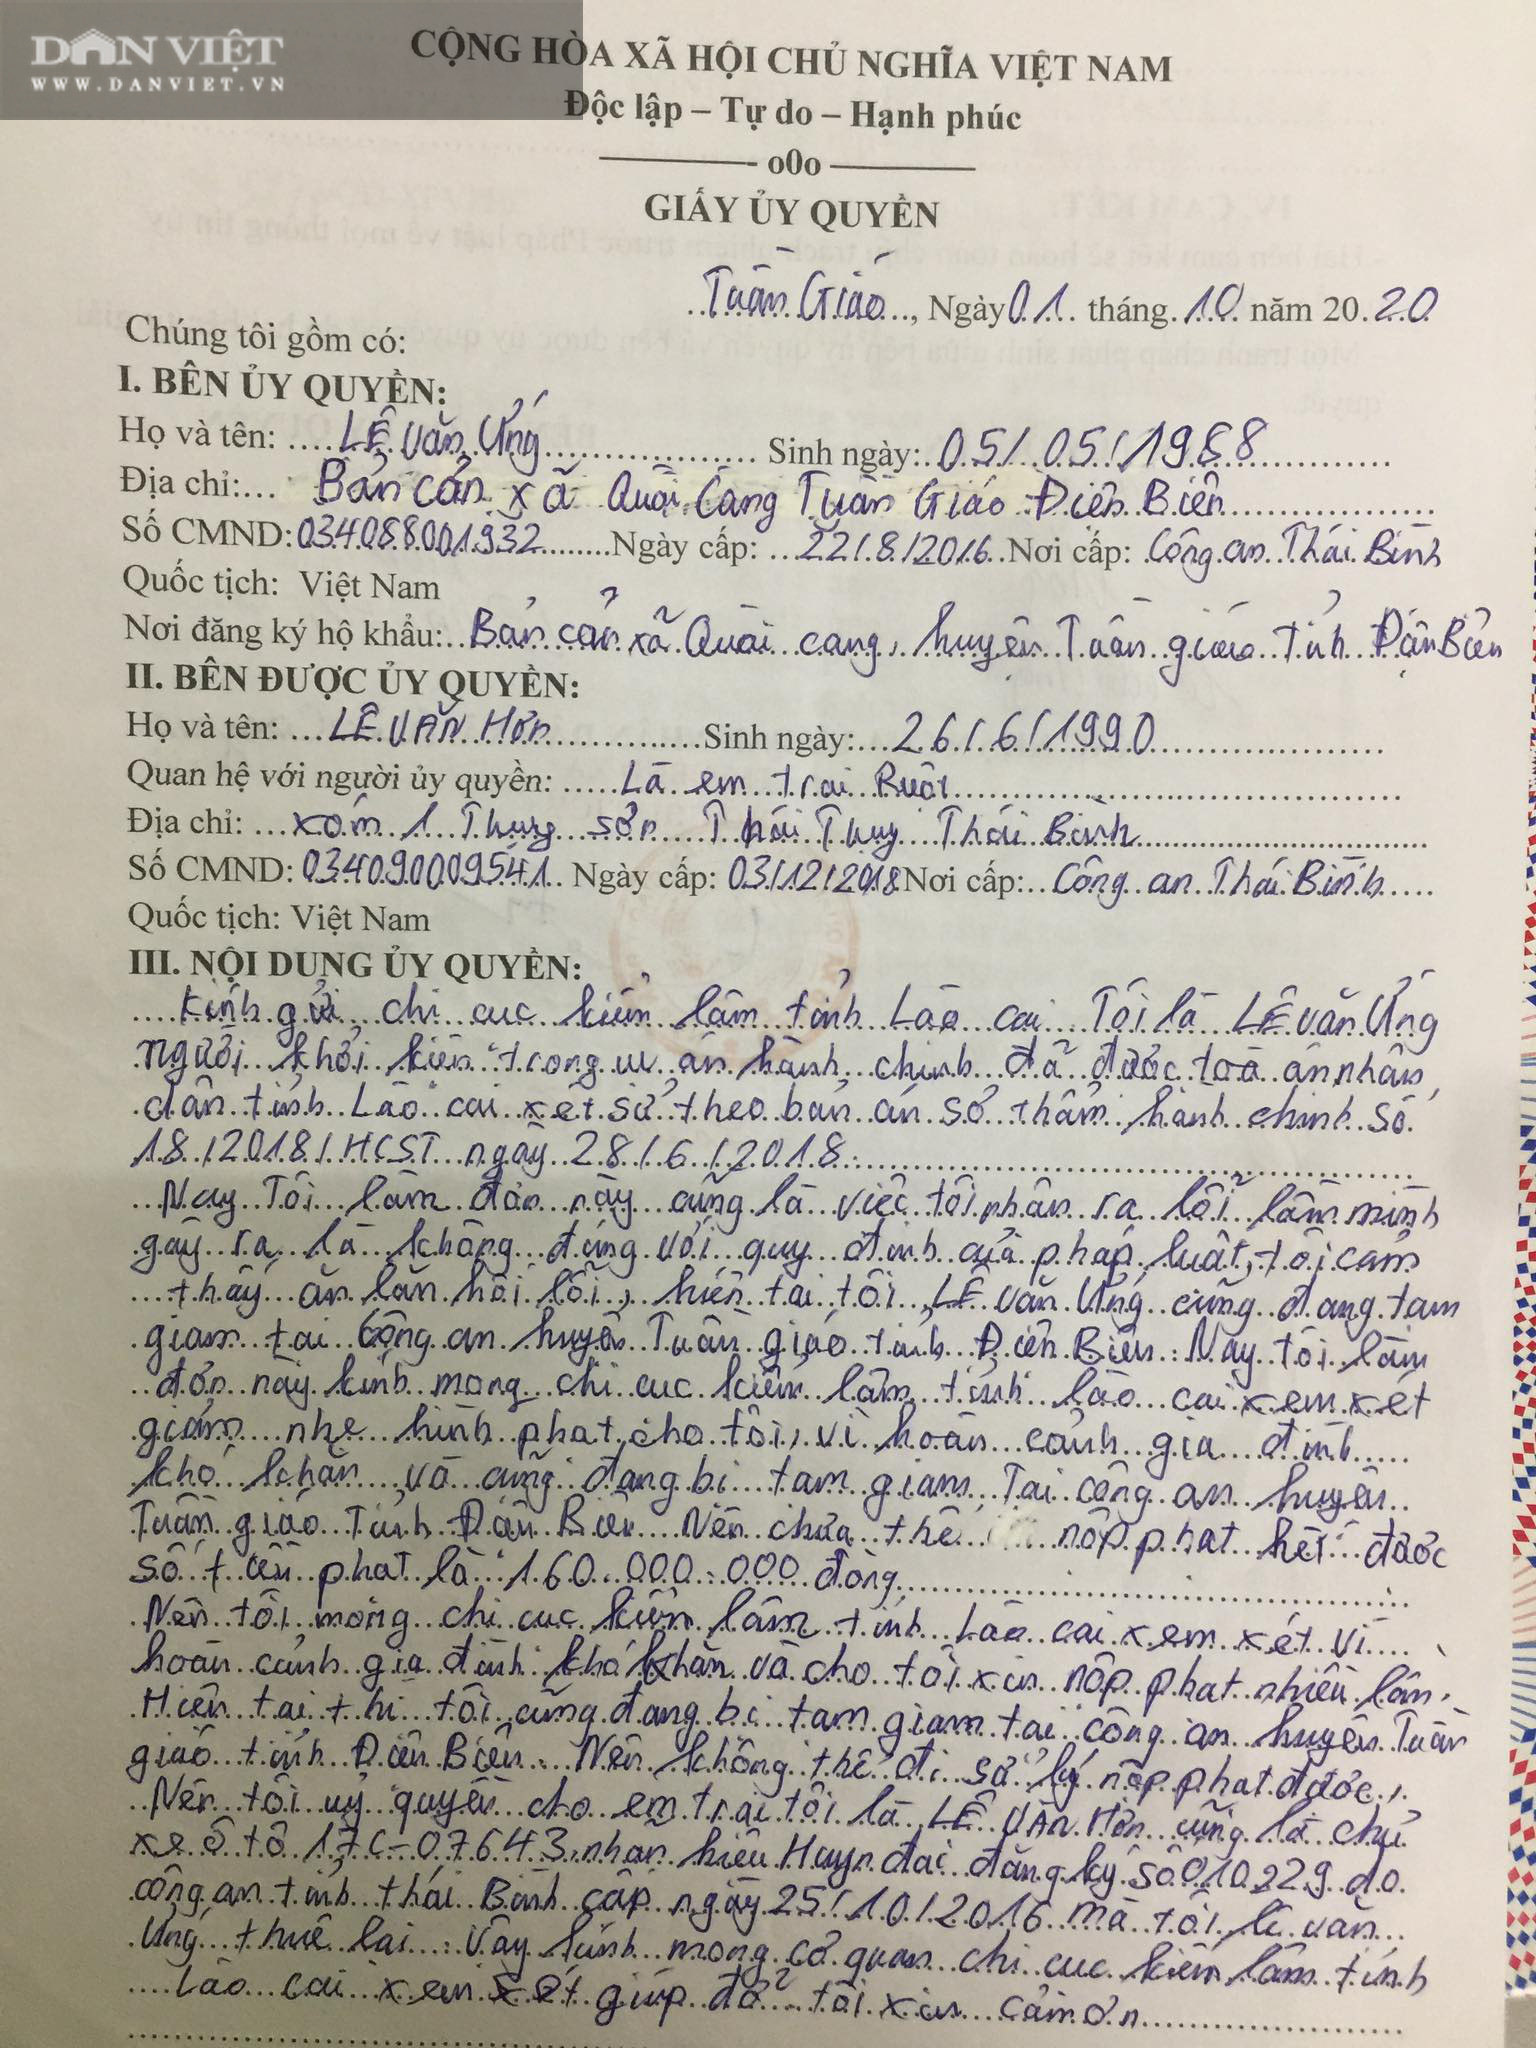 DÂN VIỆT
WWW.DANVIET.VN
CỘNG HÒA XÃ HỘI CHỦ NGHĨA VIỆT NAM
Độc lập – Tự do – Hạnh phúc
o0o
GIẤY ỦY QUYỀN
Tuần Giáo, Ngày 01 tháng 10 năm 2020
Chúng tôi gồm có:
I. BÊN ỦY QUYỀN:
Họ và tên: LÊ Văn Ứng Sinh ngày: 05/05/1988
Địa chỉ: Bản Cản xã Quài Cang Tuần Giáo Điện Biên
Số CMND: 034088001932 Ngày cấp: 22/8/2016 Nơi cấp: Công an Thái Bình
Quốc tịch: Việt Nam
Nơi đăng ký hộ khẩu: Bản cản xã Quài cang, huyện Tuần giáo tỉnh Điện Biên
II. BÊN ĐƯỢC ỦY QUYỀN:
Họ và tên: LÊ VĂN Hơn Sinh ngày: 26/6/1990
Quan hệ với người ủy quyền: Là em trai Ruột
Địa chỉ: xóm 1 Thuỵ sơn Thái Thuỵ Thái Bình
Số CMND: 034090009541 Ngày cấp: 03/12/2018 Nơi cấp: Công an Thái Bình
Quốc tịch: Việt Nam
III. NỘI DUNG ỦY QUYỀN:
Kính gửi chi cục kiểm lâm tỉnh Lào cai Tôi là LÊ Văn Ứng
người khởi kiện trong vụ án hành chính đã được toà án nhân
dân tỉnh Lào cai xét sử theo bản án sơ thẩm hành chính số
18/2018/HCST ngày 28/6/2018.
Nay Tôi làm đơn này cũng là việc tôi nhận ra lỗi lầm mình
gây ra là không đúng với quy định của pháp luật, tôi cảm
thấy ăn lăn hối lỗi, hiện tại tôi LÊ Văn Ứng cũng đang tạm
giam tại Công an huyện Tuần giáo tỉnh Điện Biên. Nay tôi làm
đơn này kính mong chi cục kiểm lâm tỉnh lào cai xem xét
giảm nhẹ hình phạt cho tôi, vì hoàn cảnh gia đình
khó khăn và cũng đang bị tạm giam Tại công an huyện
Tuần giáo Tỉnh Điện Biên Nên chưa thể nộp phạt hết được
số tiền phạt là 160.000.000 đồng
Nên tôi mong chi cục kiểm lâm tỉnh Lào cai xem xét vì
hoàn cảnh gia đình khó khăn và cho tôi xin nộp phạt nhiều lần.
Hiện tại thì tôi cũng đang bị tạm giam tại công an huyện Tuần
giáo tỉnh Điện Biên. Nên không thể đi sử lý nộp phạt được,
Nên tôi uỷ quyền cho em trai tôi là LÊ VĂN Hơn cũng là chủ
xe ô tô 17C-07643 nhãn hiệu Huyn đai đăng ký số 010229 do
công an tỉnh thái Bình cấp ngày 25/10/2016 mà tôi lê văn
Ứng thuê lại. Vậy kính mong cơ quan chi cục kiểm lâm tỉnh
Lào cai xem xét giúp đỡ tôi xin cảm ơn